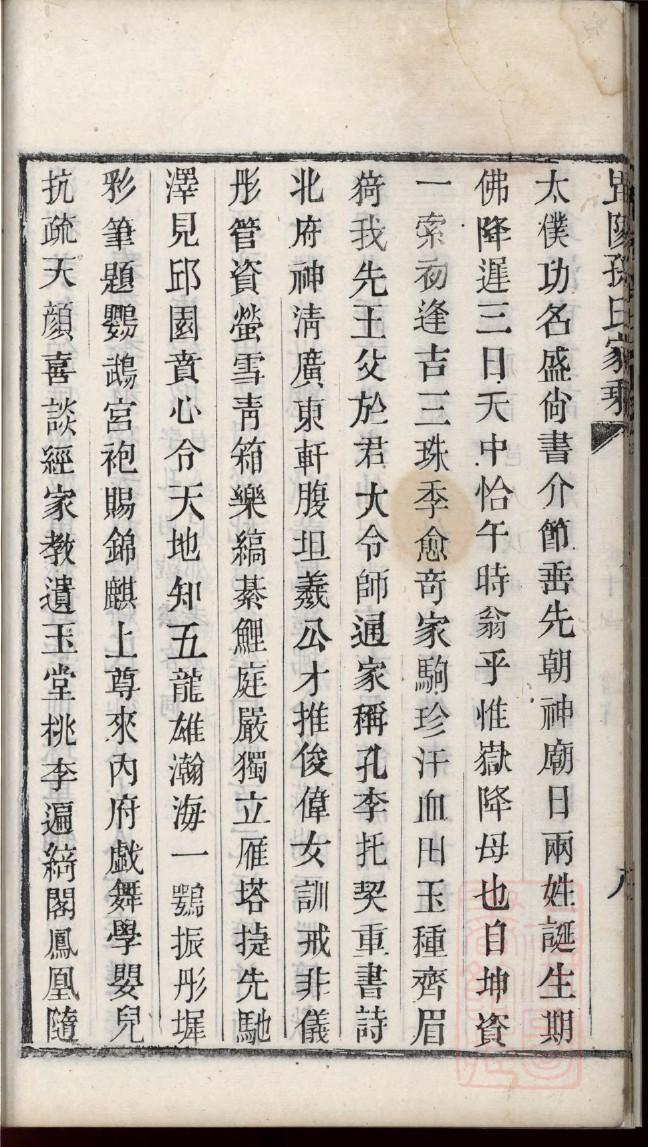 毘陽孫氏家乘
太僕功名盛尚書介節垂先朝神廟日兩姓誕生期
佛降遲三日天中恰午時翁乎惟嶽降母也自坤資
一索初逢吉三珠季愈竒家駒珍汗血田玉種齊眉
猗我先王父於君大令師通家稱孔李托契重書詩
北府神清廣東軒腹坦羲公才推俊偉女訓戒非儀
彤管資螢雪靑箱樂縞綦鯉庭嚴獨立雁塔㨗先馳
澤見邱園賁心令天地知五龍雄瀚海一鶚振彤墀
彩筆題鸚鵡宮袍賜錦麒上尊來內府戱舞學嬰兒
抗疏天顏喜談經家教遺玉堂桃李遍綺閣鳳凰隨